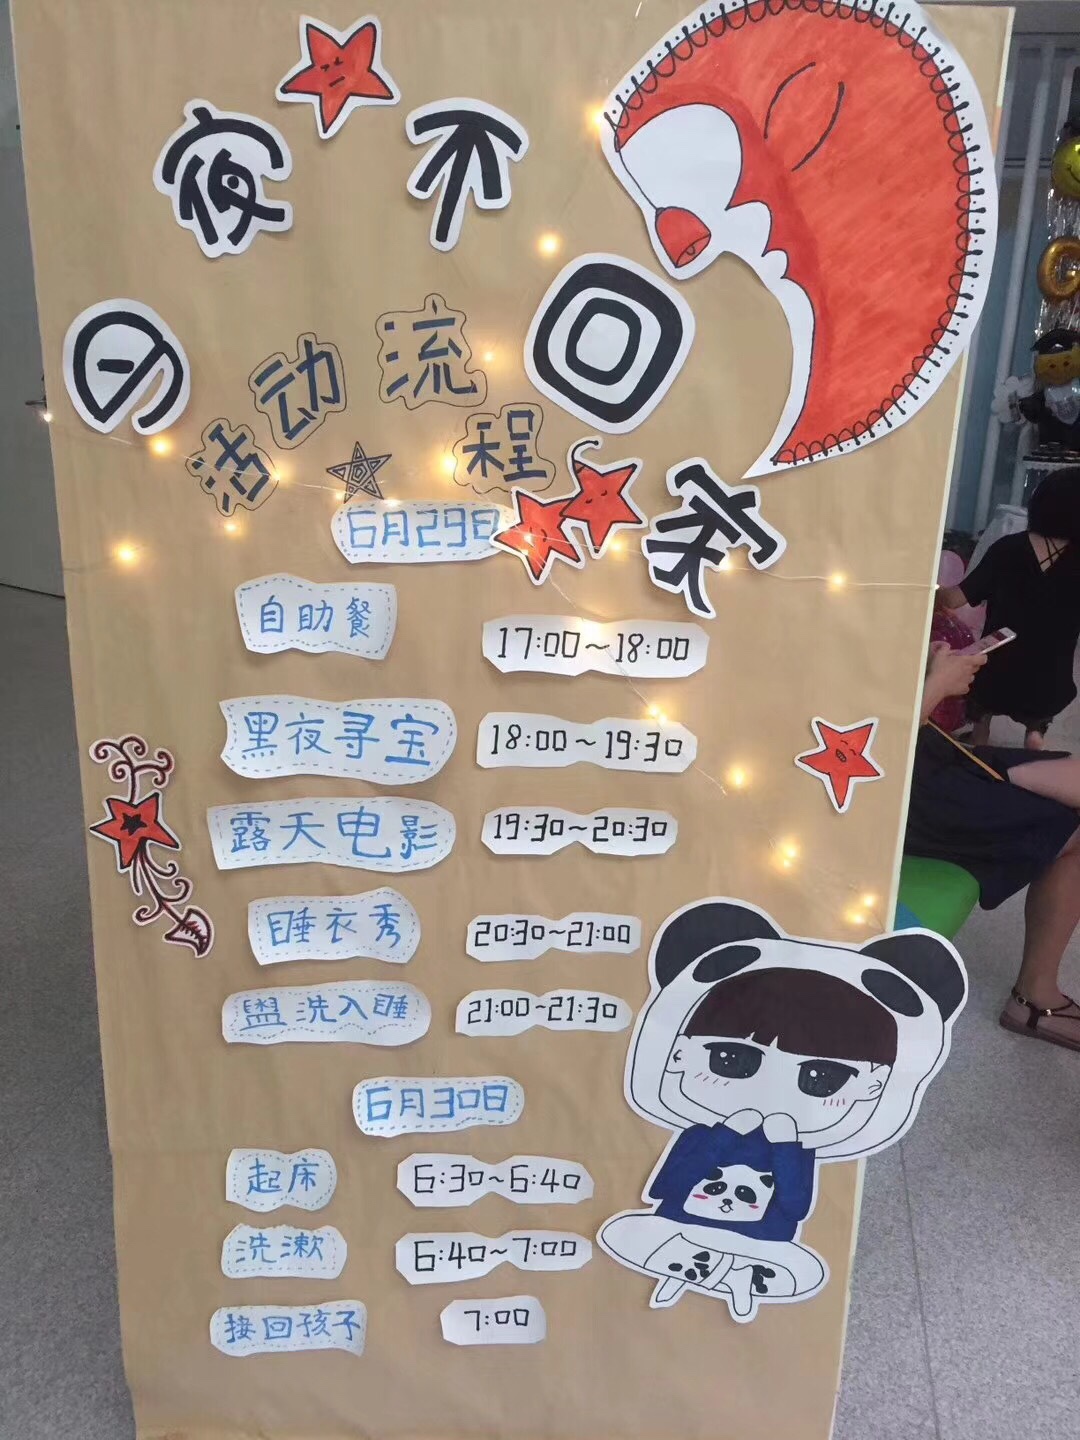 今夜不回家
活动流程
6月29日
自助餐 17:00~18:00
黑夜寻宝 18:00~19:30
露天电影 19:30~20:30
睡衣秀 20:30~21:00
盥洗入睡 21:00~21:30
6月30日
起床 6:30~6:40
洗漱 6:40~7:00
接回孩子 7:00